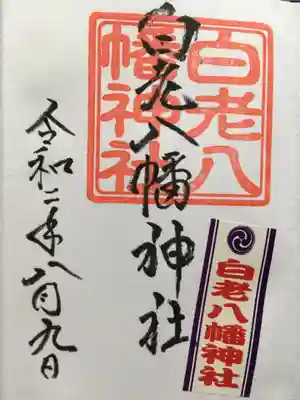 白老八
幡神社
白老八幡神社
白老八幡神社
令和二年八月九日